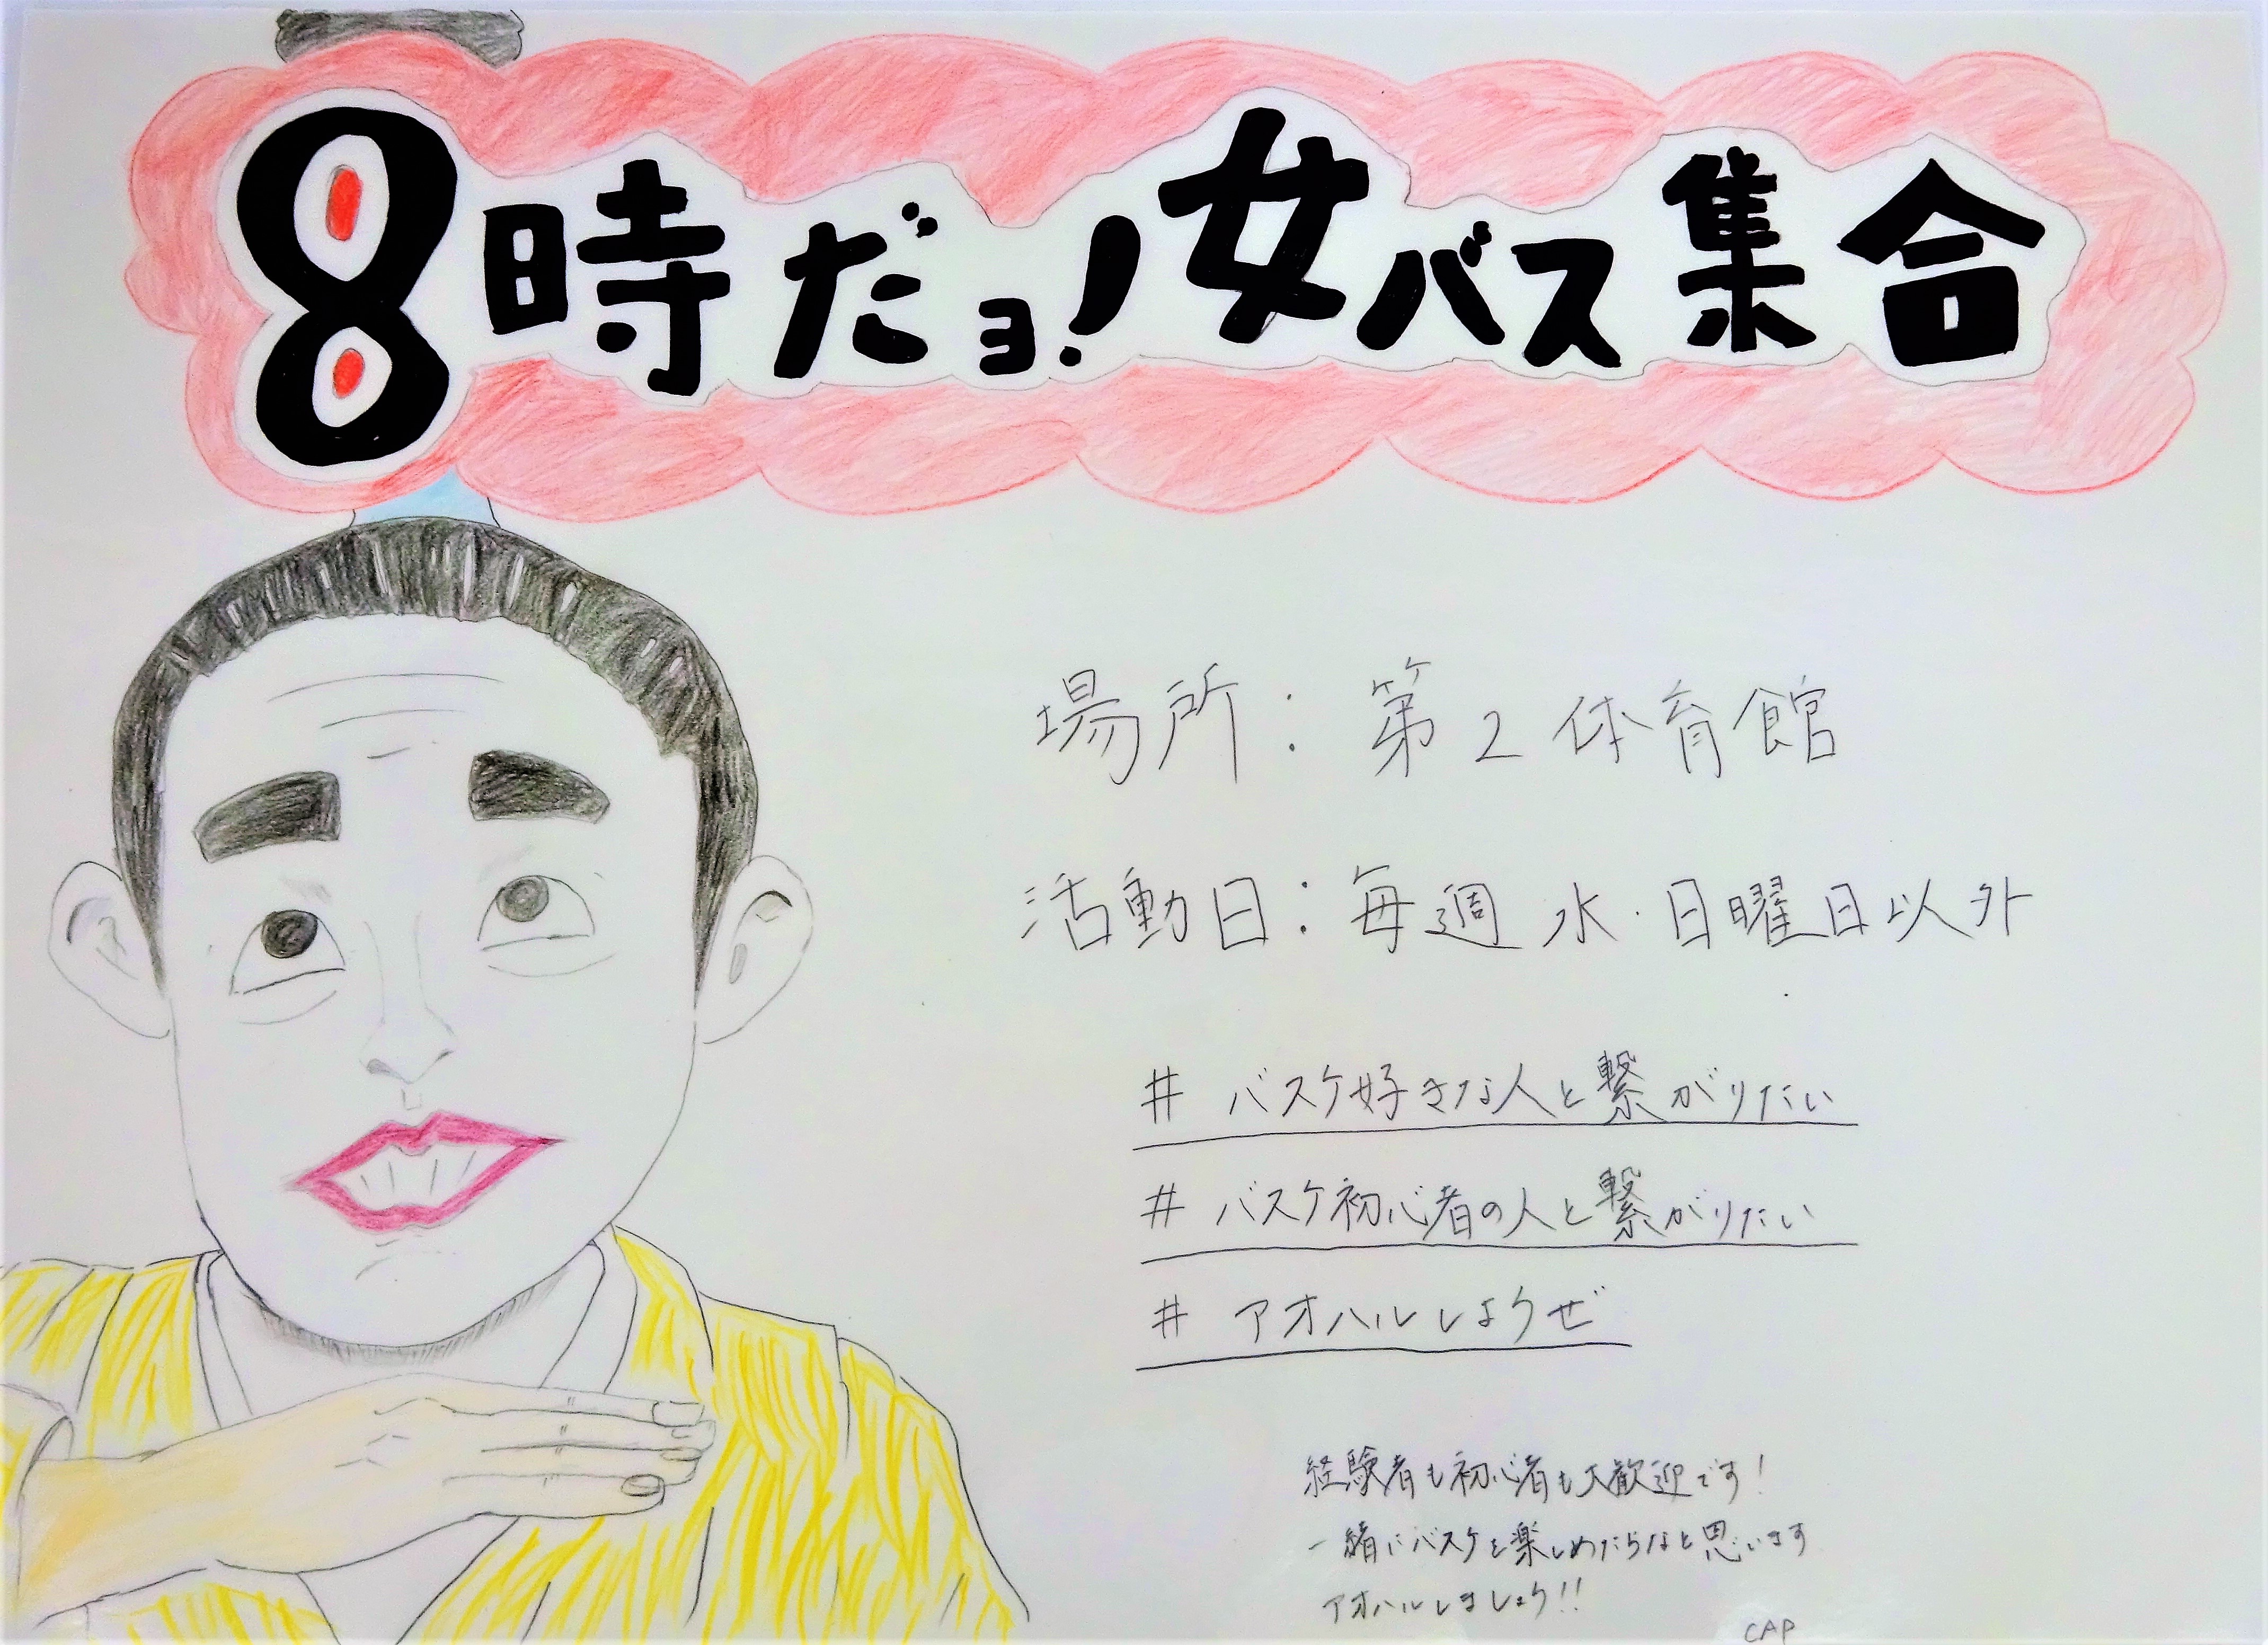 8時だョ!女バス集合
場所:第2体育館
活動日:毎週 水・日曜日以外
# バスケ好きな人と繋がりたい
# バスケ初心者の人と繋がりたい
# アオハルしようぜ
経験者も初心者も大歓迎です!
一緒にバスケを楽しめたらなと思います
アオハルしましょう!!
CAP